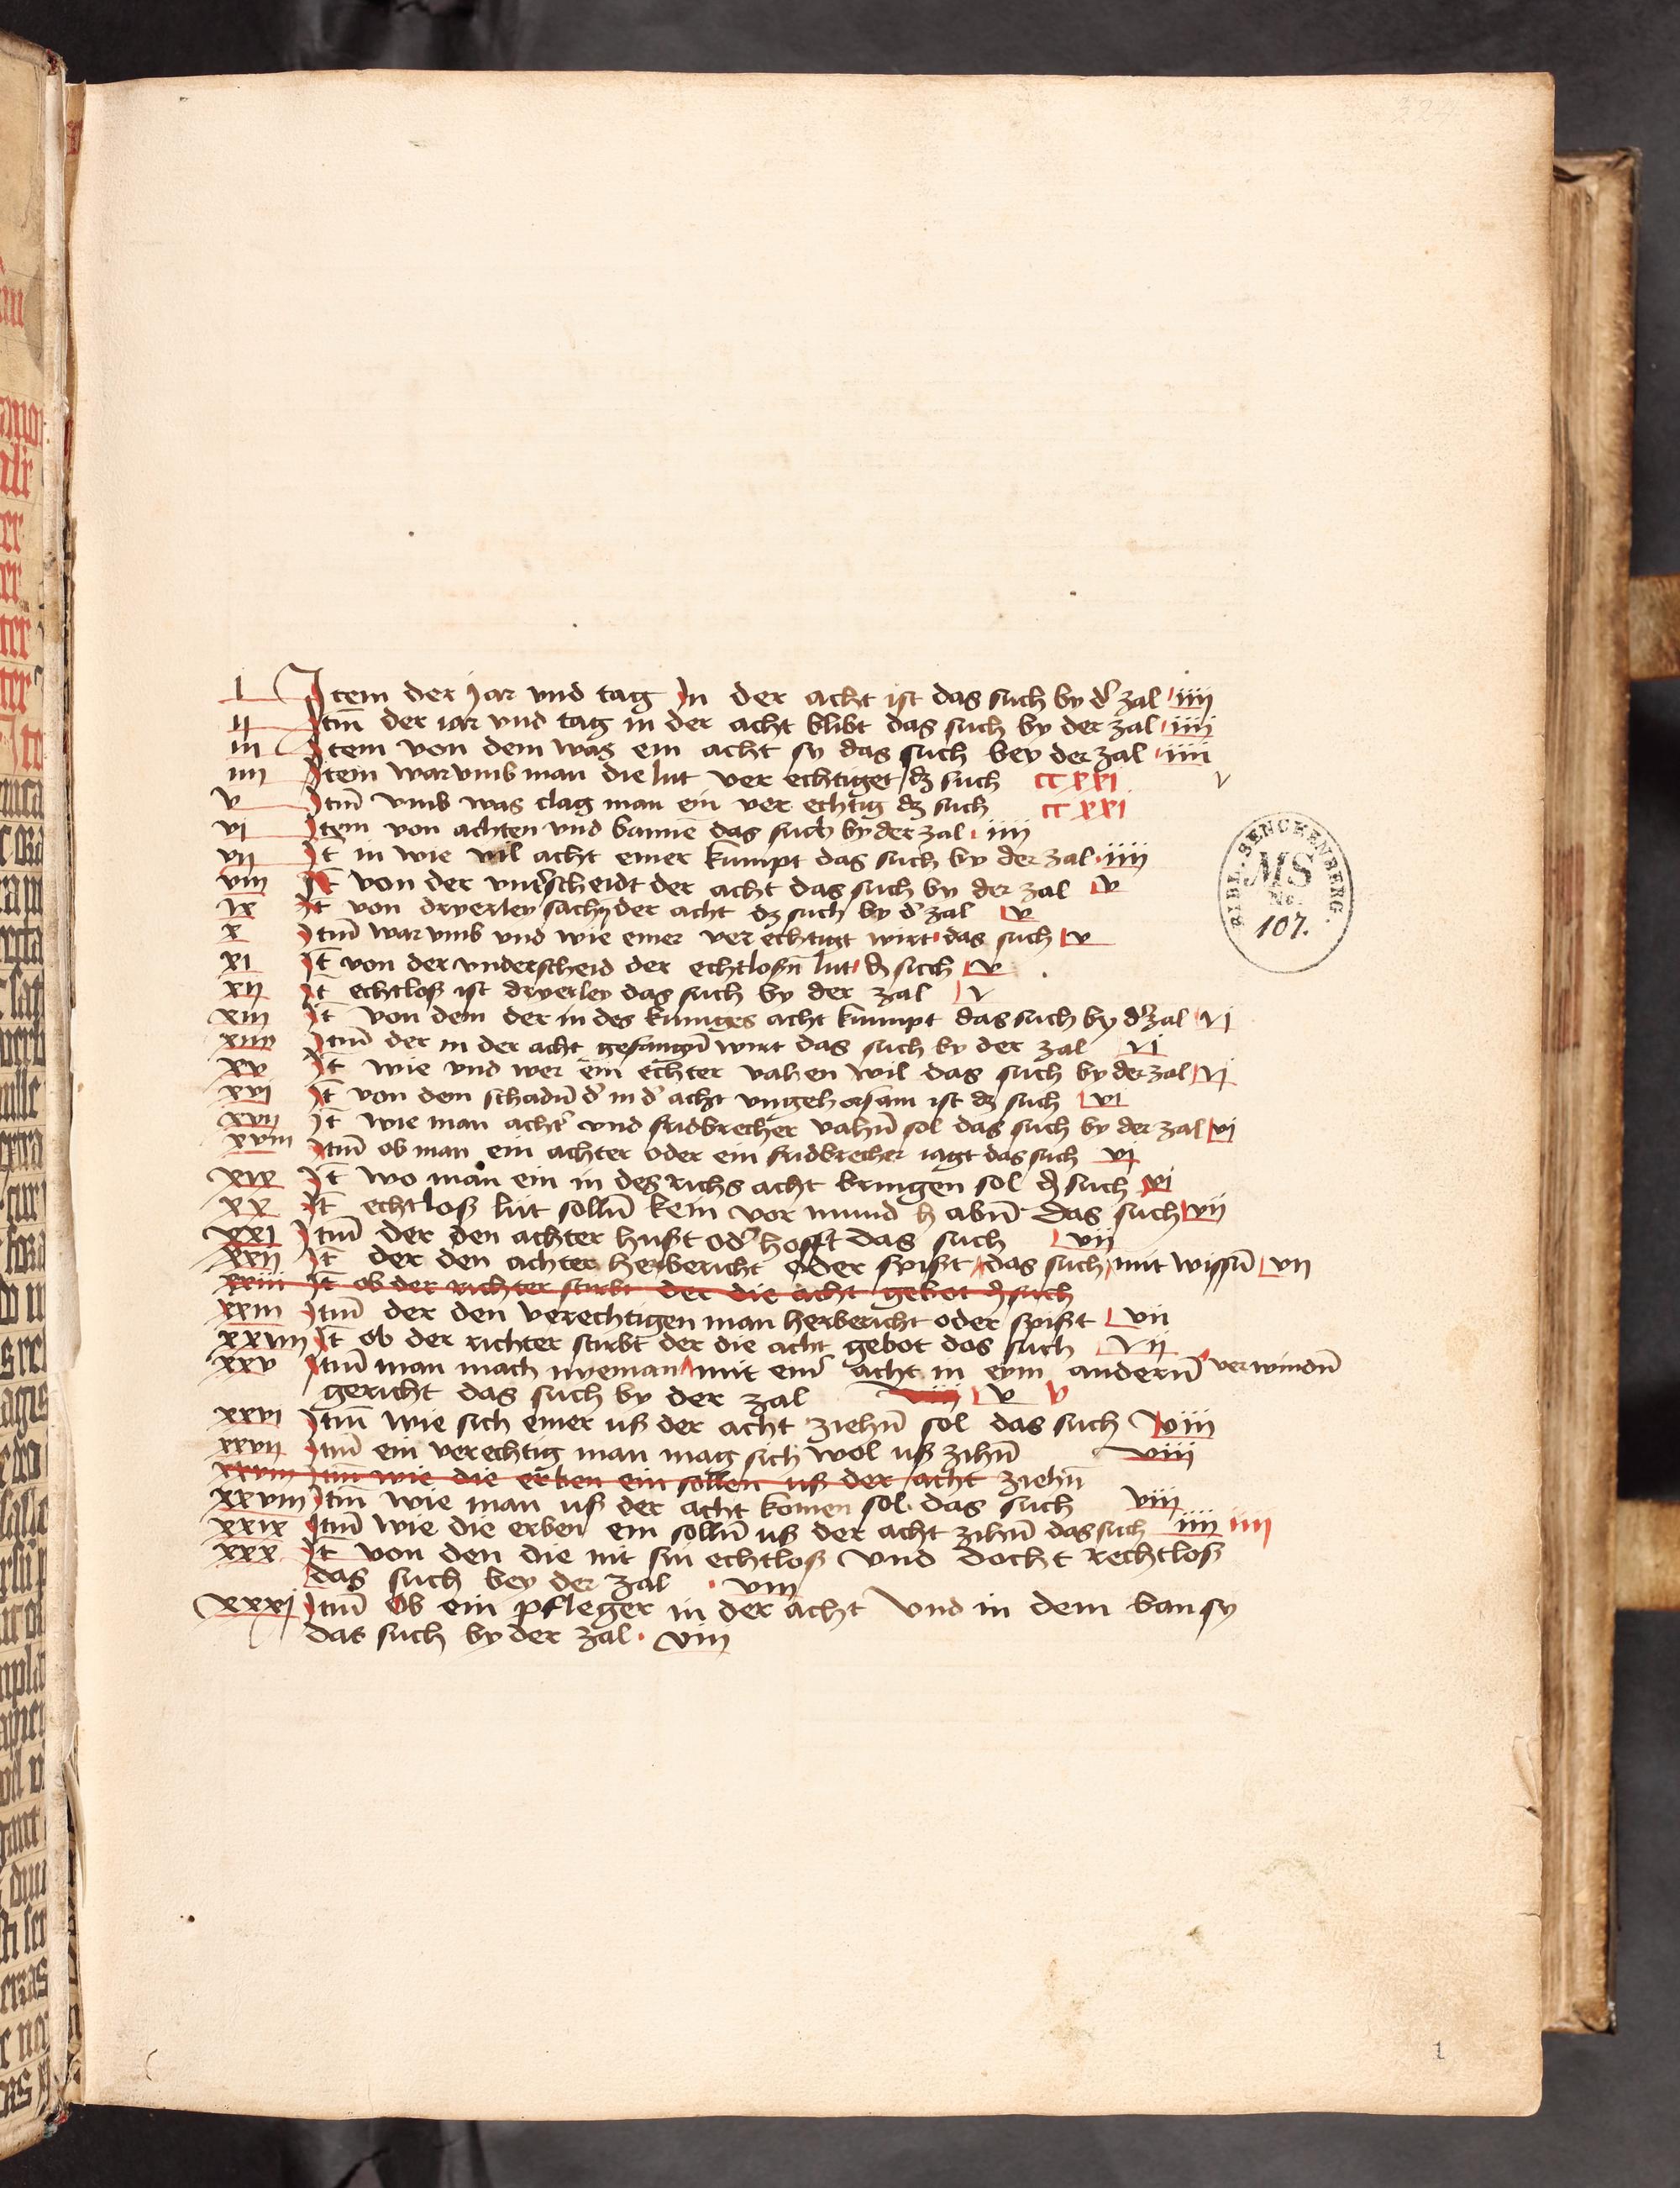 I Item der jar vnd tag In der acht ist das such by d' zal iiij
ij Itm̄ der iar vnd tag in der acht blibt das such by der zal iiij
iii Item von dem was ein acht sy das such bey der zal iiii
iiii Item warvmb man die lut ver echtiget dz such cc xxi v
v Itm̄ vmb was clag man ein ver echtig dz such cc xxi
vi Item von achten vnd bannē das such by der zal iiij
vij It̄ in wie vil acht einer kumpt das such by der zal iiij
viii It̄ von der vnt'scheidt der acht das such by der zal v
ix It von dryerley sachn̄ der acht dz such by d' zal v
x Itm̄ warvmb vnd wie einer ver echtigt wirt das such v
xi It̄ von der vnderscheid der echtlosn̄ lut dz such v
xij It echtloß ist dryerley das such by der zal v
xiii It̄ von dem der in des kuniges acht kumpt das such by d' zal vj
xiiii Itm̄ der in der acht gefangn̄ wirt das such by der zal vj
xv It̄ wie vnd wer ein echter vahen wil das such by der zal vj
xvi It̄ von dem schadn̄ d' in d' acht vngehorsam ist dz such vi
xvij It̄ wie man acht' vnd fridbrecher vahn̄ sol das such by der zal vi
xviii Itm̄ ob man ein achter oder ein fridbrecher iagt das such vi
xix It̄ wo man ein in des richs acht bringen sol dz such vi
xx It̄ echtloß lüt solln̄ kein vor mund habn̄ das such vij
xxi Itm̄ der den achter hußt od' hofft das such vij
xxij It̄ der den achter herbericht oder spißt das such mit wissn̄ vij
xxiii It̄ ob der richter stirbt der die acht gebot dz such
xxiii Itm̄ der den verechtigen man herbericht oder spißt vii
xxiiii It̄ ob der richter stirbt der die acht gebot das such vij
xxv Itm̄ man mach nyeman mit ein' acht in eym andern̄ verwindn̄
gericht das such by der zal viij v v
xxvi Itm̄ wie sich einer uß der acht ziehn̄ sol das such viii
xxvij Itm̄ ein verechtig man mag sich wol uß zihn̄ viij
xxviii Itm̄ wie die erben ein sollen uß der acht ziehn̄
xxviii Itm̄ wie man uß der acht komen sol das such viij
xxix Itm̄ wie die erben ein solln̄ uß der acht zihn̄ das such iiij iiij
xxx It̄ von den die nit sin echtloß vnd docht rechtloß
das such bey der zal viij
xxxj Itm̄ Ob ein pfleger in der acht vnd in dem ban sy
das such by der zal viij
BIBL. SENCKENBERG.
MS
No.
107.
1